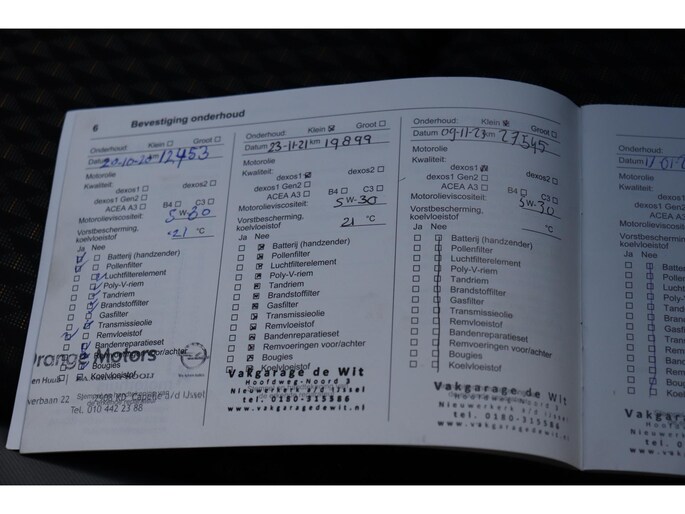 6
Bevestiging onderhoud
Onderhoud: Klein Groot
Datum 20-10-20 km 12453
Motorolie
Kwaliteit:
dexos1 dexos2
dexos1 Gen2
ACEA A3 B4 C3
Motorolieviscositeit: 5 W-30
Vorstbescherming,
koelvloeistof -21 °C
Ja Nee
Batterij (handzender)
Pollenfilter
Luchtfilterelement
Poly-V-riem
Tandriem
Brandstoffilter
Gasfilter
Transmissieolie
Remvloeistof
Bandenreparatieset
Remvoeringen voor/achter
Bougies
Koelvloeistof
Orange Motors
verbaan 22 2908 KD Capelle a/d IJssel
Tel. 010 442 23 88
Onderhoud: Klein Groot
Datum 23-11-21 km 19899
Motorolie
Kwaliteit:
dexos1 dexos2
dexos1 Gen2
ACEA A3 B4 C3
Motorolieviscositeit: 5 W-30
Vorstbescherming,
koelvloeistof 21 °C
Ja Nee
Batterij (handzender)
Pollenfilter
Luchtfilterelement
Poly-V-riem
Tandriem
Brandstoffilter
Gasfilter
Transmissieolie
Remvloeistof
Bandenreparatieset
Remvoeringen voor/achter
Bougies
Koelvloeistof
Vakgarage de Wit
Hoofdweg-Noord 3
Nieuwerkerk a/d IJssel
tel. 0180-315586
www.vakgaragedewit.nl
Onderhoud: Klein Groot
Datum 09-11-23 km 27545
Motorolie
Kwaliteit:
dexos1 dexos2
dexos1 Gen2
ACEA A3 B4 C3
Motorolieviscositeit: 5 W-30
Vorstbescherming,
koelvloeistof °C
Ja Nee
Batterij (handzender)
Pollenfilter
Luchtfilterelement
Poly-V-riem
Tandriem
Brandstoffilter
Gasfilter
Transmissieolie
Remvloeistof
Bandenreparatieset
Remvoeringen voor/achter
Bougies
Koelvloeistof
Vakgarage de Wit
Hoofdweg-Noord 3
Nieuwerkerk a/d IJssel
tel. 0180-315586
www.vakgaragedewit.nl
Onderhoud:
Datum
Motorolie
Kwaliteit:
dexos1
dexos1 Gen2
ACEA A3
Motorolieviscositeit:
Vorstbescherming,
koelvloeistof
Ja Nee
Batterij
Pollenfilter
Luchtfilter
Poly-V-riem
Tandriem
Brandstof
Gasfilter
Transmissie
Remvloeistof
Bandenrep
Remvoering
Bougies
Koelvloeistof
Vakgarage
Hoofd
Nieuwerk
tel.
www.vak